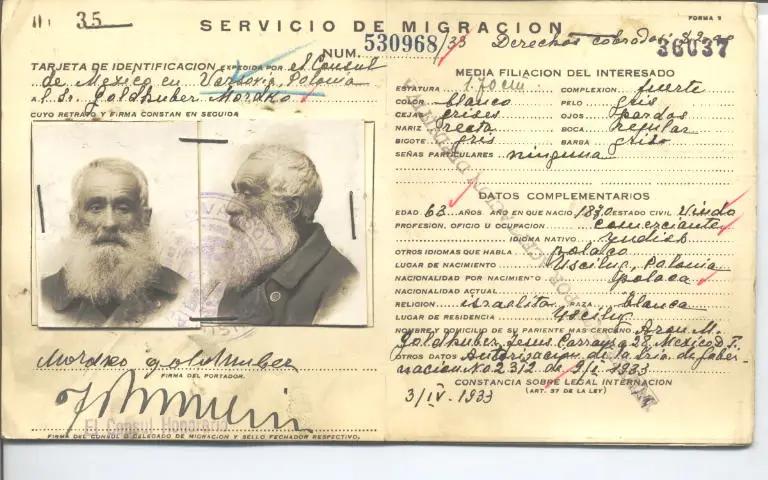 35
SERVICIO DE MIGRACION
FORMA 5
NUM. 530968/33 Derechos cobrados
36037
TARJETA DE IDENTIFICACION EXPEDIDA POR el Consul
de Mexico en Varsovia, Polonia
A l Sr. Goldhuber Mordko
CUYO RETRATO Y FIRMA CONSTAN EN SEGUIDA
Mordko Goldhuber
FIRMA DEL PORTADOR.
El Consul Honorario
FIRMA DEL CONSUL O DELEGADO DE MIGRACION Y SELLO FECHADOR RESPECTIVO.
MEDIA FILIACION DEL INTERESADO
ESTATURA 1.70 cm. COMPLEXION fuerte
COLOR blanco PELO gris
CEJAS grises OJOS pardos
NARIZ recta BOCA regular
BIGOTE gris BARBA
SEÑAS PARTICULARES ninguna
DATOS COMPLEMENTARIOS
EDAD 63 AÑOS AÑO EN QUE NACIO ESTADO CIVIL Viudo
PROFESION, OFICIO U OCUPACION comerciante
IDIOMA NATIVO
OTROS IDIOMAS QUE HABLA polaco
LUGAR DE NACIMIENTO Uscilug, Polonia
NACIONALIDAD POR NACIMIENTO polaca
NACIONALIDAD ACTUAL
RELIGION israelita RAZA blanca
LUGAR DE RESIDENCIA Uscilug
NOMBRE Y DOMICILIO DE SU PARIENTE MAS CERCANO M.
Goldhuber, Jesus Carranza 28 Mexico D. F.
OTROS DATOS Autorizacion de la Sria de Gober-
nacion No 2312 de 9/I 1933
CONSTANCIA SOBRE LEGAL INTERNACION
(ART. 57 DE LA LEY)
3/IV. 1933